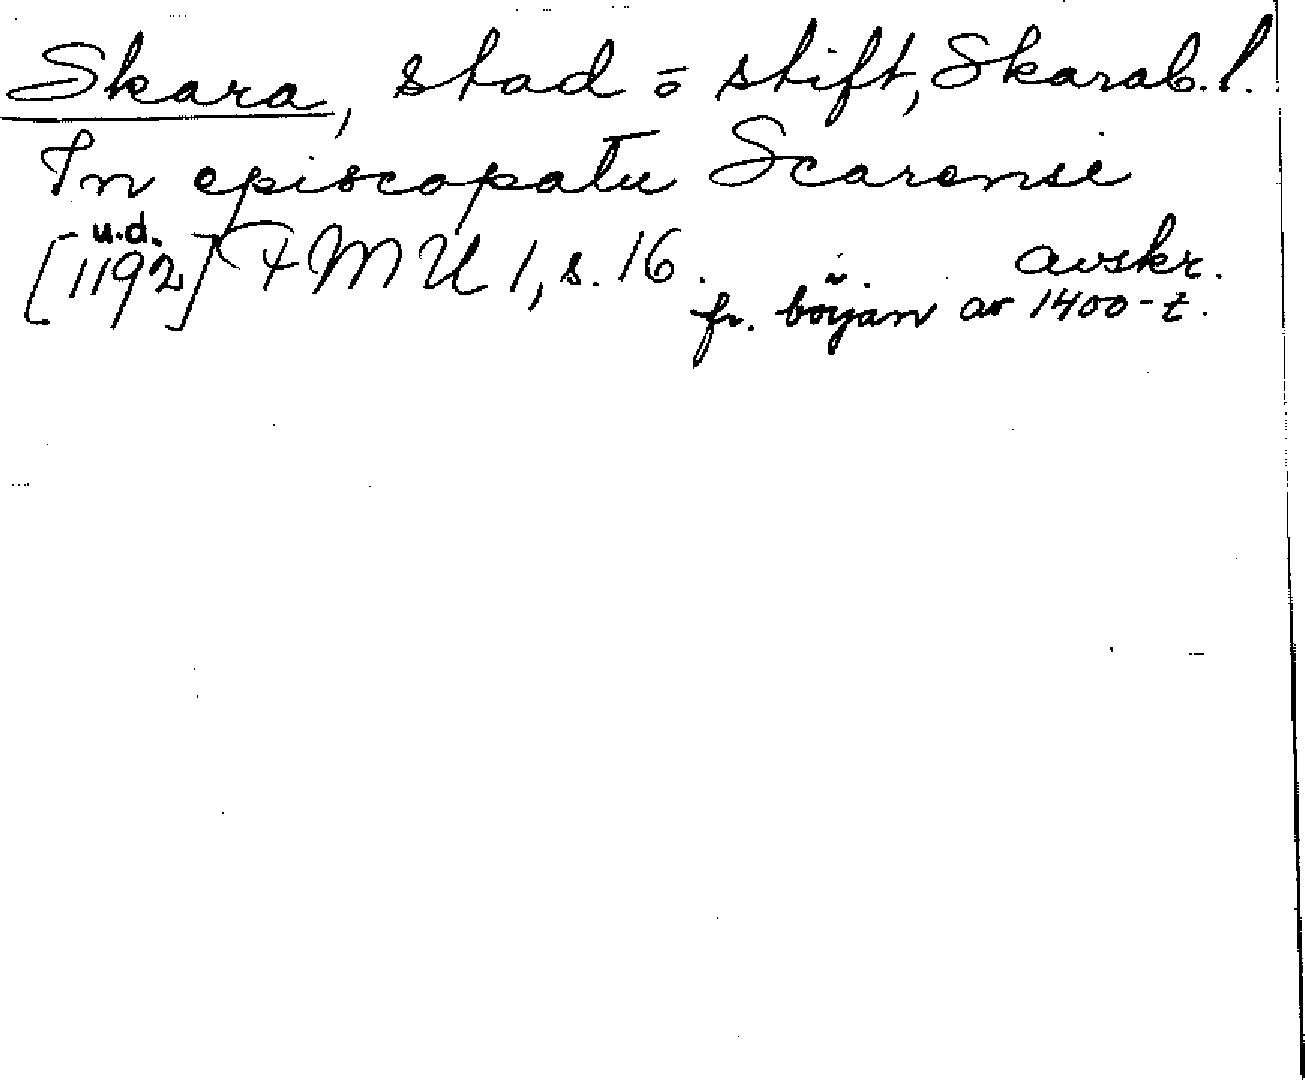 Skara, stad o stift, Skarab. l.
In episcopatu Scarensi
u.d.
[1192] FMU 1, s. 16. avskr.
fr. början av 1400-t.